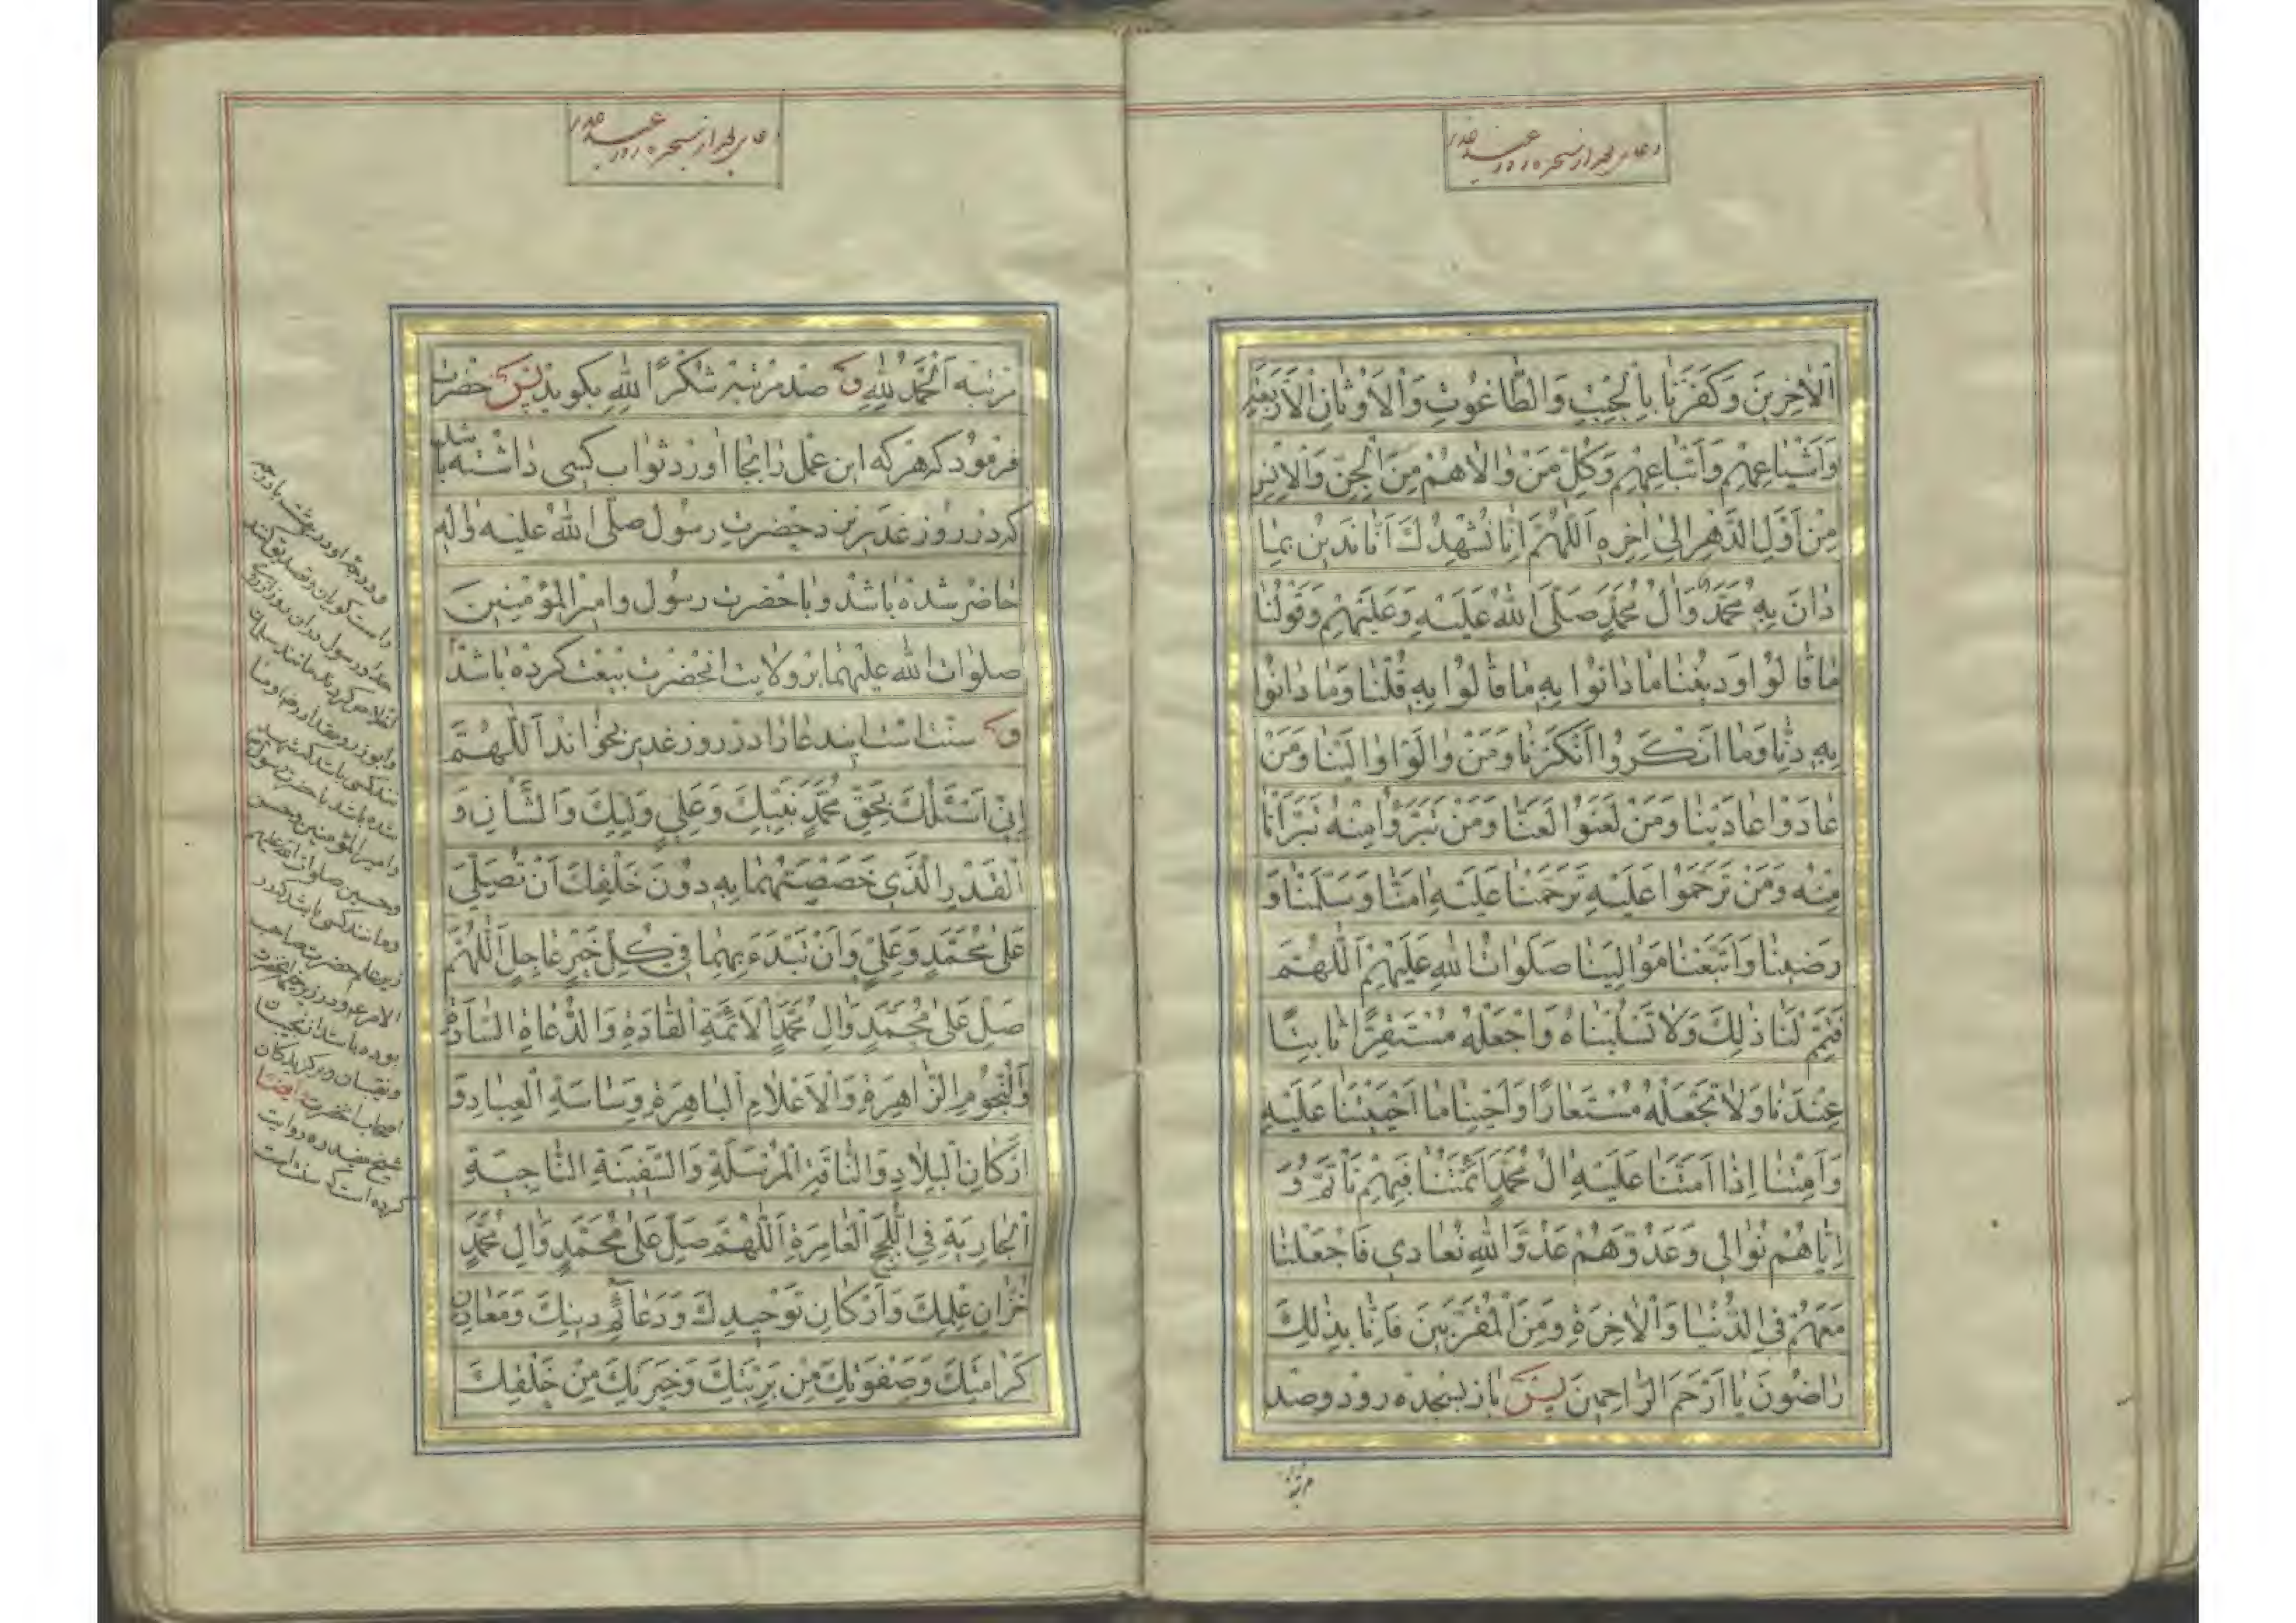 الْاٰخِرِينَ وَكَفَرْنَا بِالْجِبْتِ وَالطَّاغُوتِ وَالْاَوْثَانِ الْاَرْبَعَةِ
وَاَشْيَاعِهِمْ وَاَتْبَاعِهِمْ وَكُلِّ مَنْ وَالَاهُمْ مِنَ الْجِنِّ وَالْاِنْسِ
مِنْ اَوَّلِ الدَّهْرِ اِلىٰ اٰخِرِهِ اَللّٰهُمَّ اِنَّا نُشْهِدُكَ اَنَّا نَدِينُ بِمَا
دَانَ بِهِ مُحَمَّدٌ وَاٰلُ مُحَمَّدٍ صَلَّى اللّٰهُ عَلَيْهِ وَعَلَيْهِمْ وَقَوْلُنَا
مَا قَالُوا وَدِينُنَا مَا دَانُوا بِهِ مَا قَالُوا بِهِ قُلْنَا وَمَا دَانُوا
بِهِ دِنَّا وَمَا اَنْكَرُوا اَنْكَرْنَا وَمَنْ وَالَوْا وَالَيْنَا وَمَنْ
عَادَوْا عَادَيْنَا وَمَنْ لَعَنُوا لَعَنَّا وَمَنْ تَبَرَّوْا مِنْهُ تَبَرَّاْنَا
مِنْهُ وَمَنْ تَرَحَّمُوا عَلَيْهِ تَرَحَّمْنَا عَلَيْهِ اٰمَنَّا وَسَلَّمْنَا وَ
رَضِينَا وَاتَّبَعْنَا مَوَالِيَنَا صَلَوَاتُ اللّٰهِ عَلَيْهِمْ اَللّٰهُمَّ
فَتَمِّمْ لَنَا ذٰلِكَ وَلَا تَسْلُبْنَاهُ وَاجْعَلْهُ مُسْتَقِرًّا ثَابِتًا
عِنْدَنَا وَلَا تَجْعَلْهُ مُسْتَعَارًا وَاَحْيِنَا مَا اَحْيَيْتَنَا عَلَيْهِ
وَاَمِتْنَا اِذَا اَمَتَّنَا عَلَيْهِ اٰلُ مُحَمَّدٍ اَئِمَّتُنَا فَبِهِمْ نَاْتَمُّ وَ
اِيَّاهُمْ نُوَالِي وَعَدُوَّهُمْ عَدُوَّ اللّٰهِ نُعَادِي فَاجْعَلْنَا
مَعَهُمْ فِي الدُّنْيَا وَالْاٰخِرَةِ وَمِنَ الْمُقَرَّبِينَ فَاِنَّا بِذٰلِكَ
رَاضُونَ يَا اَرْحَمَ الرَّاحِمِينَ پس باز بسجده رود وصد
مرتبه
مرتبه اَلْحَمْدُ لِلّٰهِ و صد مرتبه شُكْرًا لِلّٰهِ بكويد پس حضرت
فرمود كه هركه اين عمل را بجا اورد ثواب كسى داشته باشد
كه در روز غدير نزد حضرت رسول صلى الله عليه واله
حاضر شده باشد و با حضرت رسول وامير المؤمنين
صلوات الله عليهما بر ولايت انحضرت بيعت كرده باشد
و سنت است اين دعا را در روز غدير بخواند اَللّٰهُمَّ
اِنِّي اَسْئَلُكَ بِحَقِّ مُحَمَّدٍ نَبِيِّكَ وَعَلِيٍّ وَلِيِّكَ وَالشَّاْنِ وَ
الْقَدْرِ الَّذِي خَصَصْتَهُمَا بِهِ دُونَ خَلْقِكَ اَنْ تُصَلِّيَ
عَلىٰ مُحَمَّدٍ وَعَلِيٍّ وَاَنْ تَبْدَءَ بِهِمَا فِي كُلِّ خَيْرٍ عَاجِلٍ اَللّٰهُمَّ
صَلِّ عَلىٰ مُحَمَّدٍ وَاٰلِ مُحَمَّدٍ الْاَئِمَّةِ الْقَادَةِ وَالدُّعَاةِ السَّادَةِ
وَالنُّجُومِ الزَّاهِرَةِ وَالْاَعْلَامِ الْبَاهِرَةِ وَسَاسَةِ الْعِبَادِ وَ
اَرْكَانِ الْبِلَادِ وَالنَّاقَةِ الْمُرْسَلَةِ وَالسَّفِينَةِ النَّاجِيَةِ
الْجَارِيَةِ فِي اللُّجَجِ الْغَامِرَةِ اَللّٰهُمَّ صَلِّ عَلىٰ مُحَمَّدٍ وَاٰلِ مُحَمَّدٍ
خُزَّانِ عِلْمِكَ وَاَرْكَانِ تَوْحِيدِكَ وَدَعَائِمِ دِينِكَ وَمَعَادِنِ
كَرَامَتِكَ وَصَفْوَتِكَ مِنْ بَرِيَّتِكَ وَخِيَرَتِكَ مِنْ خَلْقِكَ
خدا ورسول در ان روز
كرده اند مانند سلمان
وابوذر ومقداد
كسى باشد كه شهيد
شده باشد با حضرت رسول
وامير المؤمنين وحسن
وحسين صلوات الله عليهم
ومانند كسى باشد كه در
زير علم حضرت صاحب
الامر
بوده باشد از نجيبان
ونقيبان
اصحاب انحضرت ايضا
شيخ مفيد ره روايت
كرده است كه سنت است